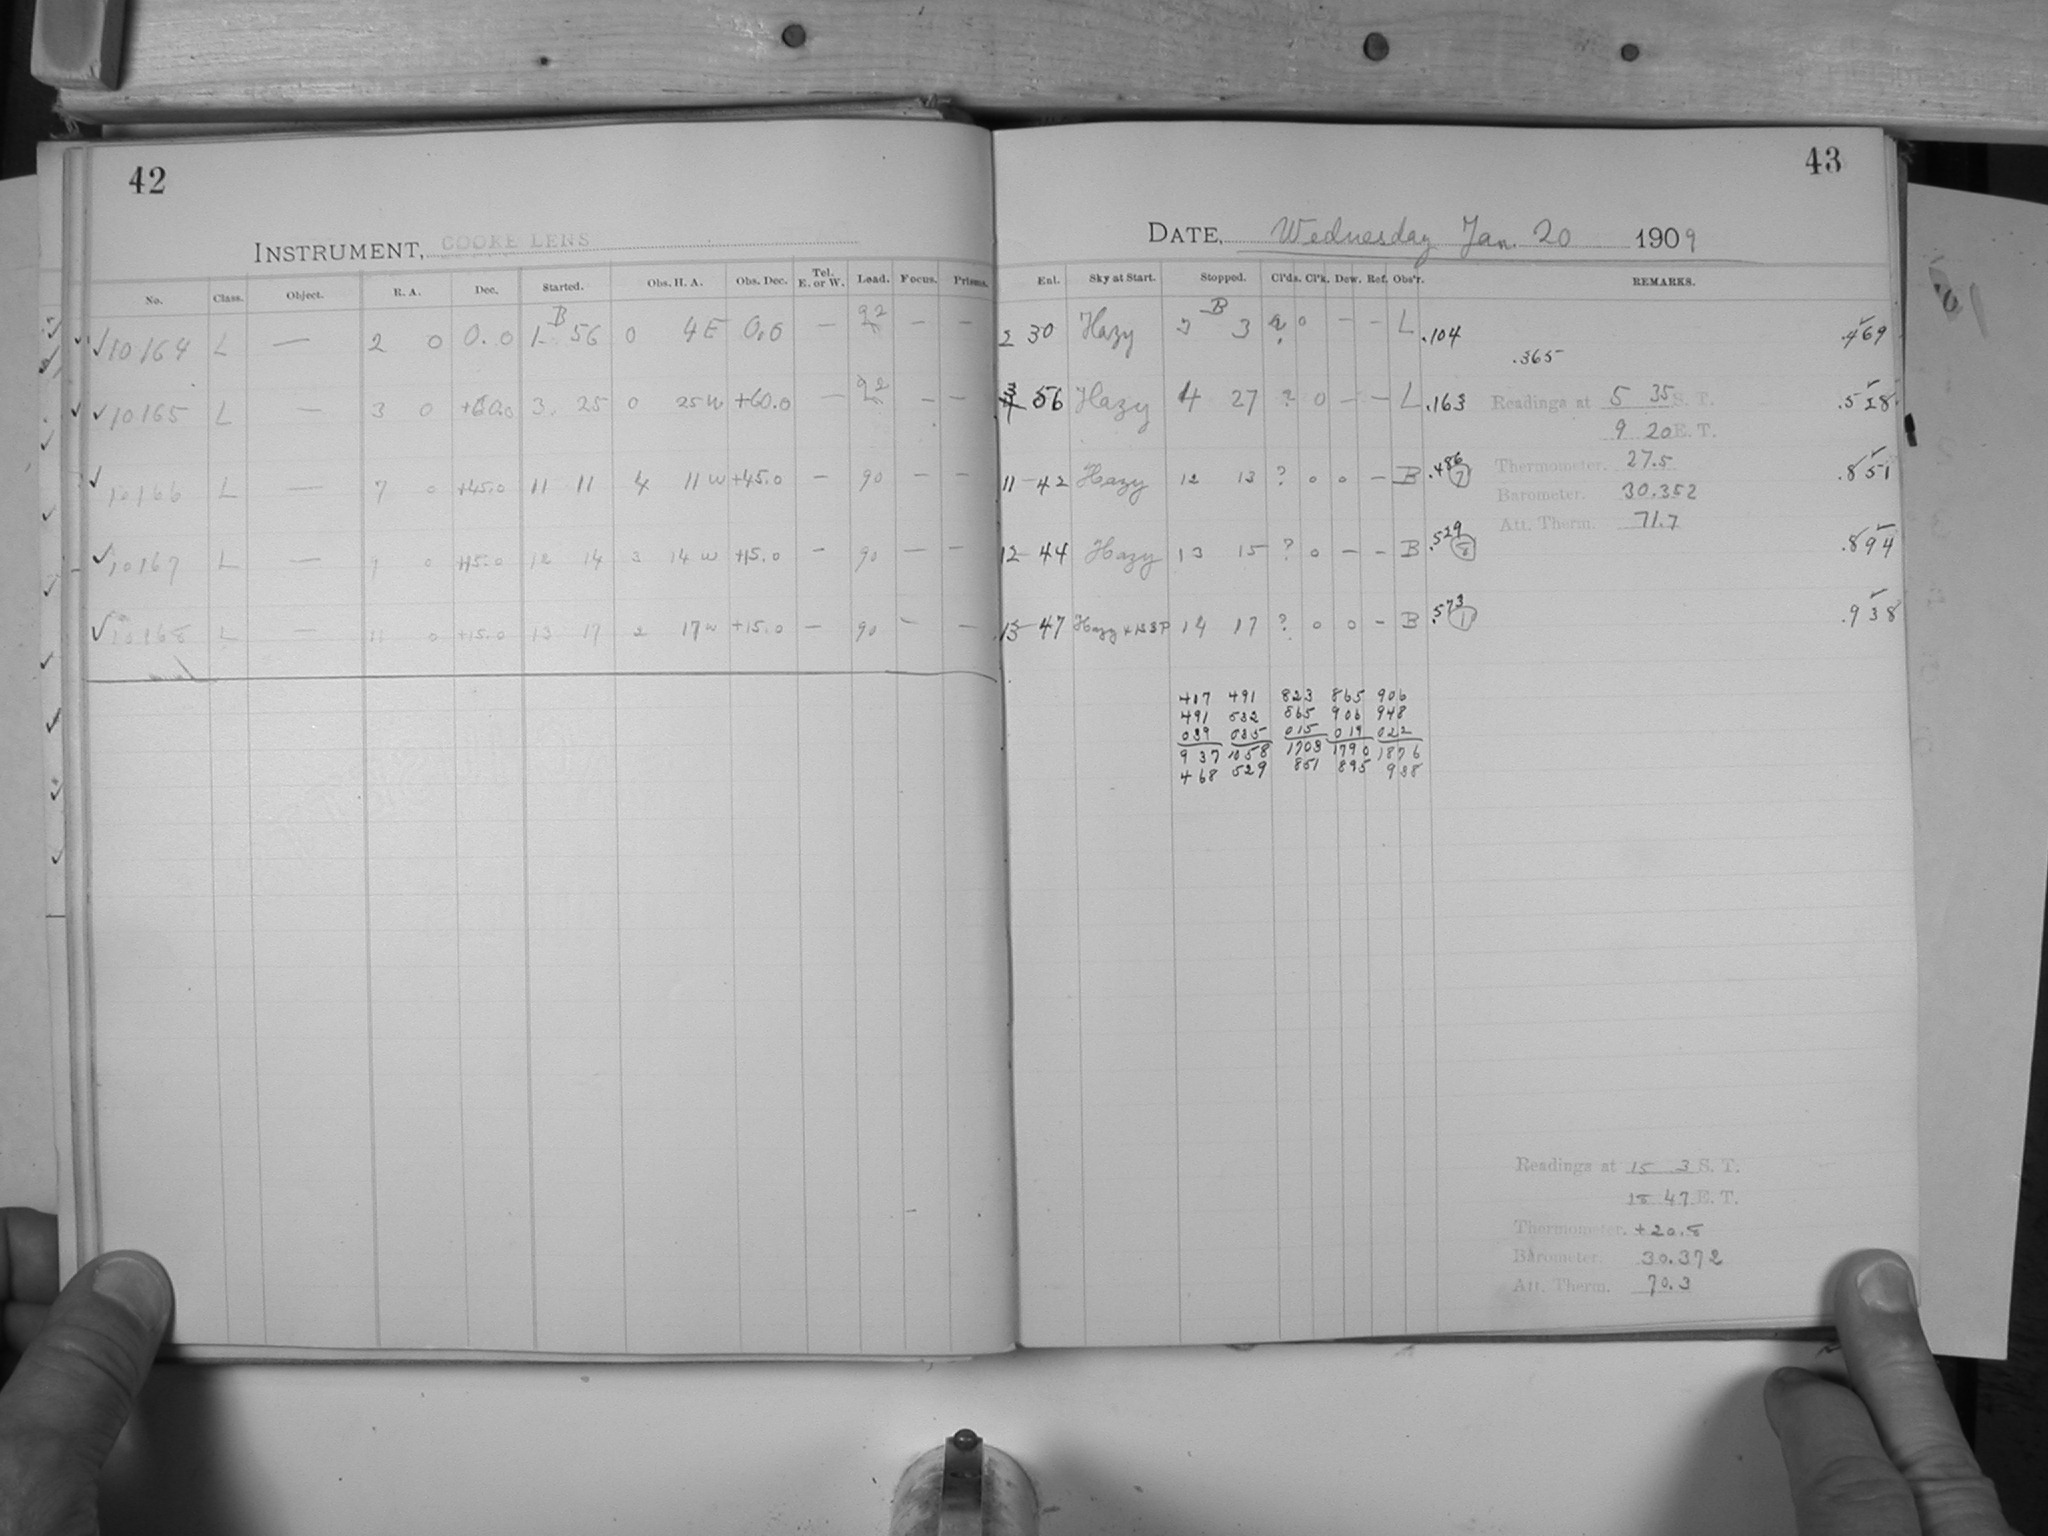 42
INSTRUMENT, COOKE LENS
No. Class. Object. R. A. Dec. Started. Obs. H. A. Obs. Dec. Tel. E. or W. Load. Focus. Prisms.
✓ 10164 L — 2 0 0.0 1 B 56 0 4 E 0.0 — 92 — —
✓ 10165 L — 3 0 +60.0 3 25 0 25 W +60.0 — 92 — —
✓ 10166 L — 7 0 +45.0 11 11 4 11 W +45.0 — 90 — —
✓ 10167 L — 9 0 +15.0 12 14 3 14 W +15.0 — 90 — —
✓ 10168 L — 11 0 +15.0 13 17 2 17 W +15.0 — 90 — —
43
DATE, Wednesday Jan. 20 1909
Enl. Sky at Start. Stopped. Cl'ds. Cl'k. Dew. Ref. Obs'r. REMARKS.
2 30 Hazy 3 B 3 ? 0 — — L .104 .469
.365
3 56 Hazy 4 27 ? 0 — — L .163 .528
Readings at 5 35 S. T.
9 20 E. T.
11 42 Hazy 12 13 ? 0 0 — B .486 7 .851
Thermometer. 27.5
Barometer. 30.352
Att. Therm. 71.7
12 44 Hazy 13 15 ? 0 — — B .529 .894
13 47 Hazy 14 17 ? 0 0 — B .573 1 .938
491 823 865 906
491 532 865 906 948
039 035 015 019 022
937 1058 1703 1790 1876
468 529 851 895 938
Readings at 15 3 S. T.
18 47 E. T.
Thermometer. +20.8
Barometer. 30.372
Att. Therm. 70.3